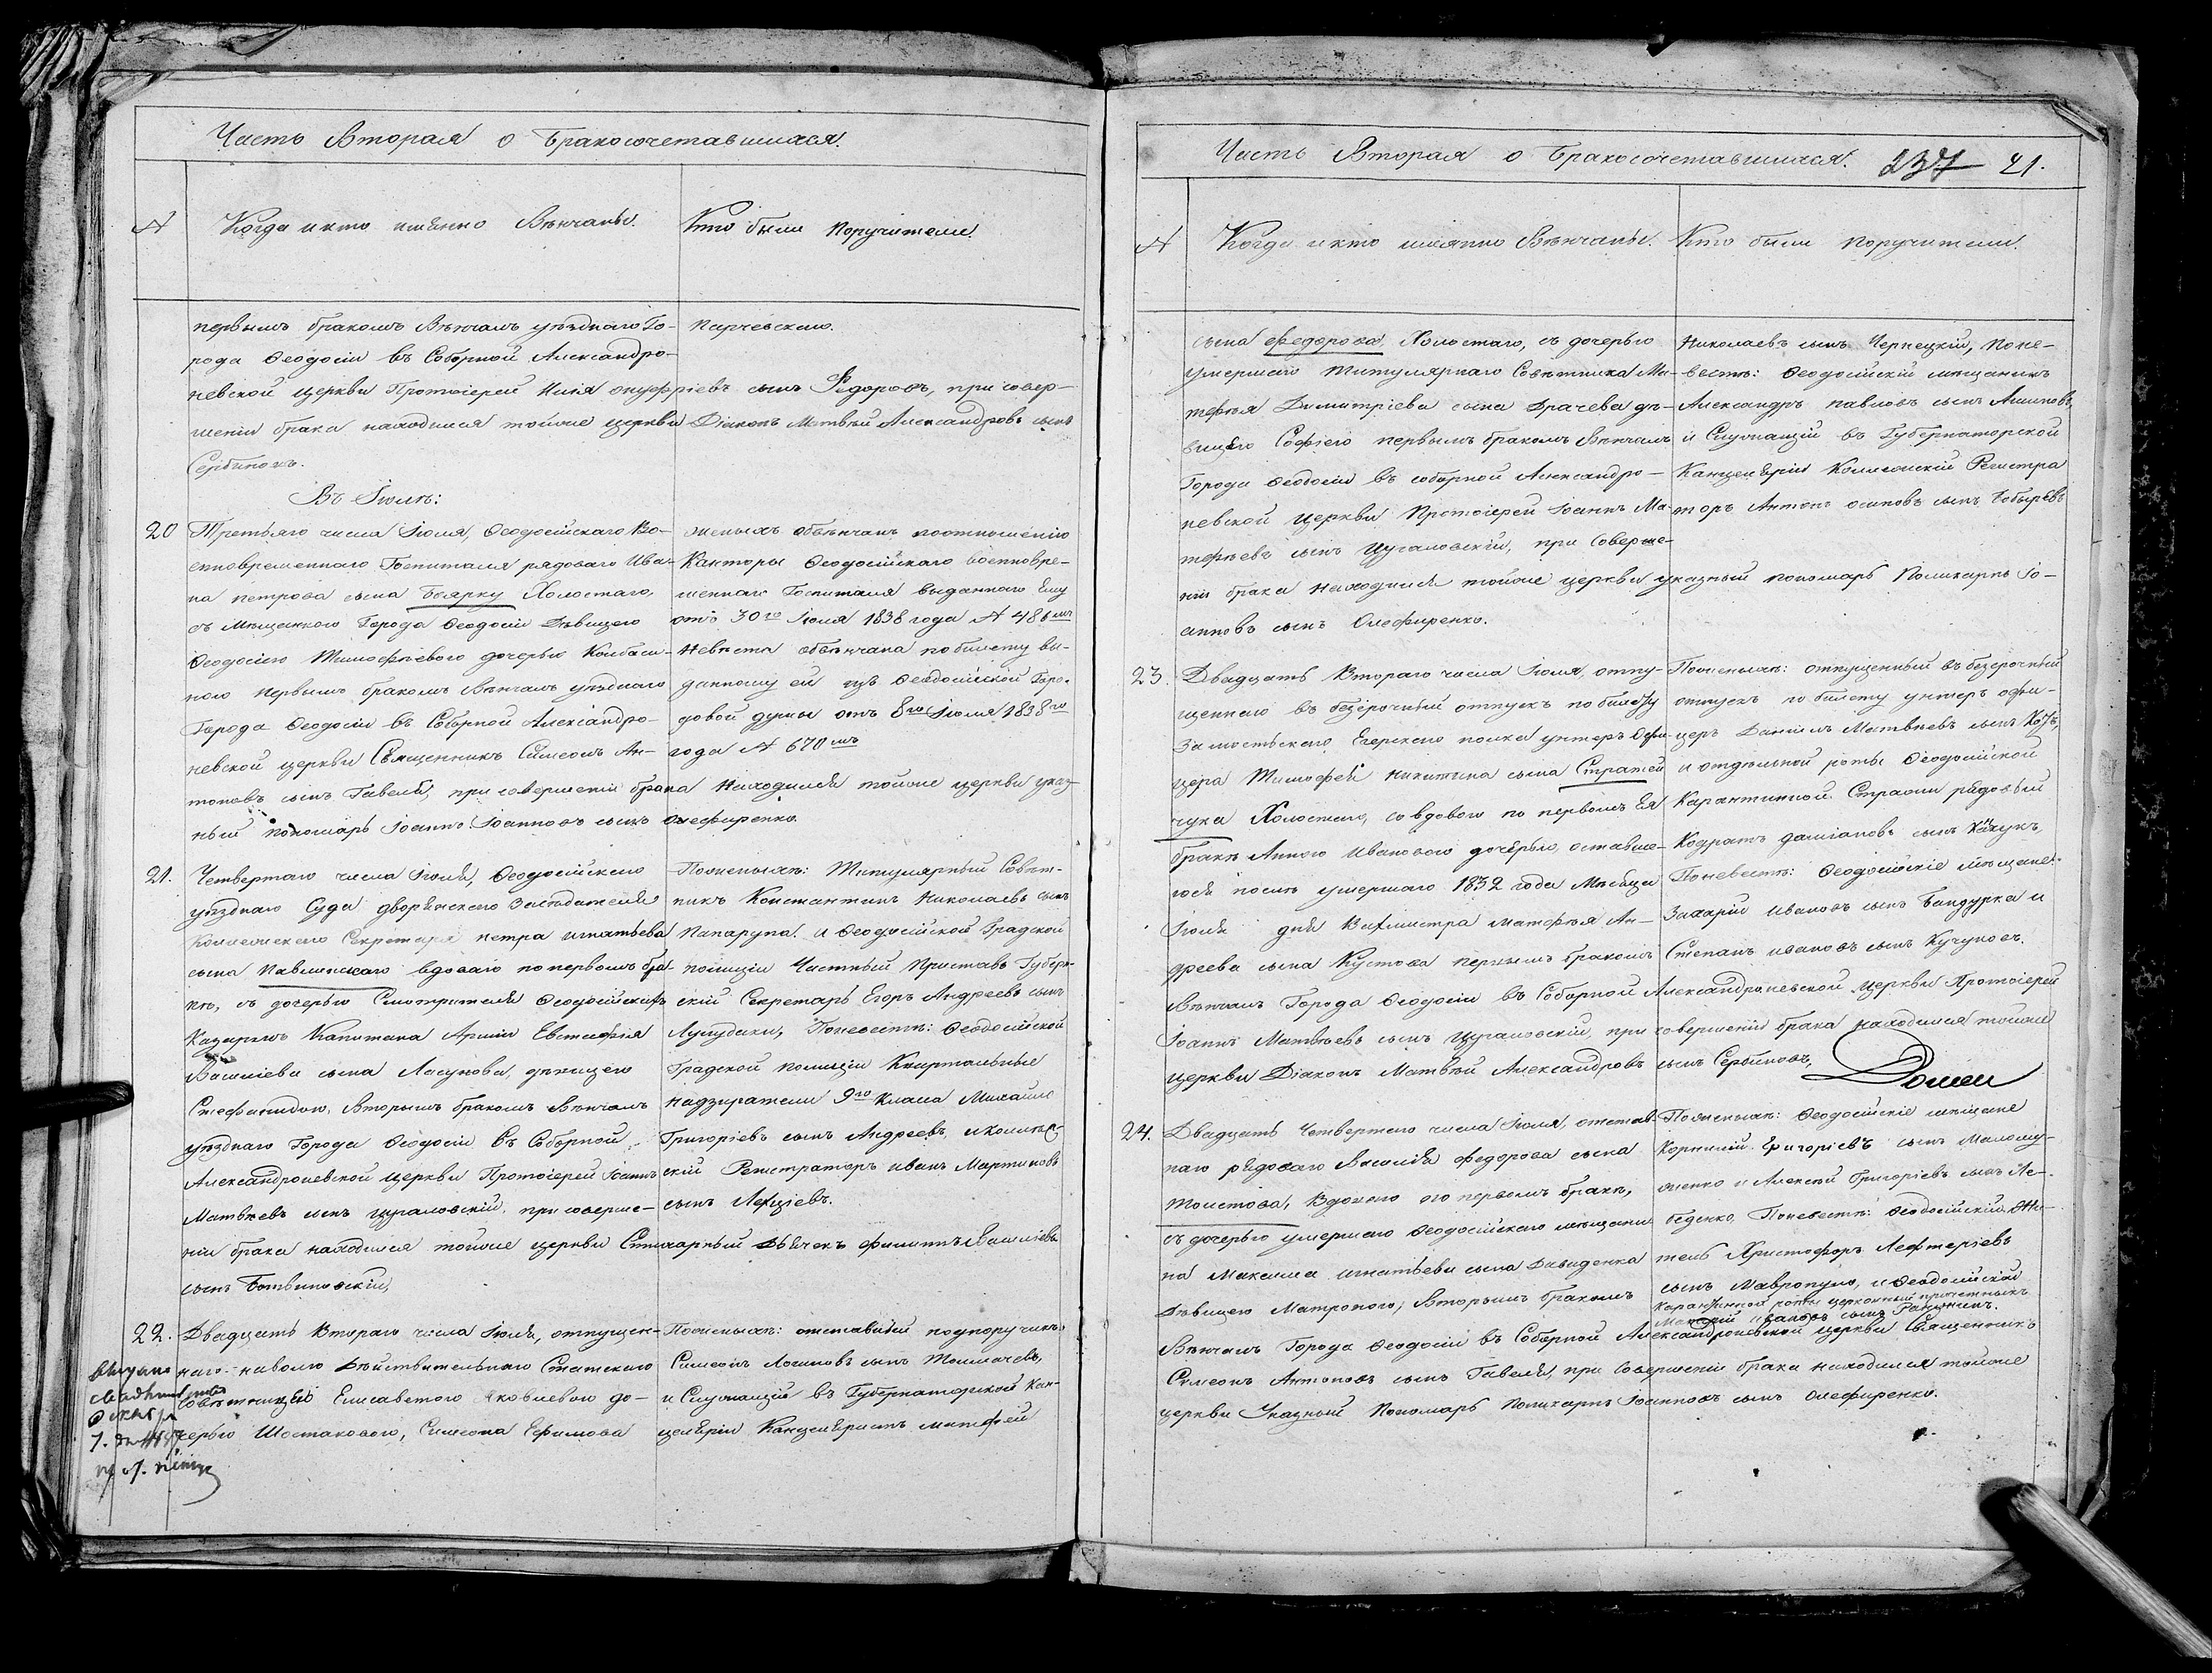 Часть Вторая о Бракосочетавшихся.
№
Когда и кто именно Вѣнчаны.
Кто были поручители.
первымъ бракомъ Вѣнчалъ уѣзднаго Го-
рода Ѳеодосіи въ Соборной Александро-
невской церкви Протоіерей Илія онуфріевъ сынъ Ѳедоровъ, при совер-
шеніи брака находился тойже церкви Діаконъ Матвѣй Александровъ сынъ
Сербиновъ.
Въ Іюлѣ:
20
Третьяго числа Іюля, Ѳеодосійскаго Во-
енновременнаго Госпиталя рядоваго Ива-
на петрова сына Боярку Холостаго,
съ Мѣщанкою Города Ѳеодосіи Дѣвицею
Ѳеодосіею Тимофѣевою дочерью
ною первымъ бракомъ Вѣнчалъ уѣзднаго
Города Ѳеодосіи въ Соборной Александро-
невской церкви Священникъ Симеонъ Ан-
тоновъ сынъ Гавель, при совершеніи брака находился тойже церкви указ-
ный пономарь Іоаннъ Іоанновъ сынъ Олефиренко.
женихъ обвѣнчанъ поотношенію
Канторы Ѳеодосійскаго военновре-
меннаго Госпиталя выданнаго Ему
отъ 30го Іюля 1838 года № 486мъ
Невѣста обвѣнчана по билету вы-
данному ей изъ Ѳеодосійской Горо-
довой думы отъ 8го Іюля 1838го
года № 670мъ
21.
Четвертаго числа Іюля, Ѳеодосійскаго
уѣзднаго Суда дворянскаго Засѣдателя
Коллежскаго Секретаря петра игнатьева
сына Павлинскаго вдоваго по первомъ бра-
кѣ, съ дочерью Смотрителя Ѳеодосійскихъ
Казармъ Капитана Арміи Евстафія
Василіева сына Ласунова, дѣвицею
Стефанидою, Вторымъ бракомъ Вѣнчалъ
уѣзднаго Города Ѳеодосіи въ Соборной
Александроневской церкви Протоіерей Іоаннъ
Матвѣевъ сынъ Цугаловскій, при соверше-
ніи брака находился тойже церкви Стихарный Дьячекъ филиппъ Василіевъ
сынъ Ботвиновскій,
Поженихѣ: Титулярный Совѣт-
никъ Константинъ Николаевъ сынъ
Папарупа. и Ѳеодосійской Градской
полиціи Частный Приставъ Губерн-
скій Секретарь Егоръ Андреевъ сынъ
Поневѣстѣ: Ѳеодосійской
Градской полиціи Квартальные
надзиратели 9го класа Михайло
Григоріевъ сынъ Андреевъ, и коллеж-
скій Регистраторъ иванъ Мартиновъ
сынъ
22.
Двадцать Втораго числа Іюля, отпущен-
наго наволю Дѣйствительнаго Статскаго
Совѣтницею Елисаветою Яковлевою до-
черью Шостаковою, Симеона Ефимова
Поженихѣ: отставный подпоручикъ
Симеонъ Логиновъ сынъ Толмачевъ,
и Служащій въ Губернаторской Кан-
целяріи Канцеляристъ Матфей
Часть Вторая о Бракосочетавшихся.
237 21.
№
Когда и кто именно Вѣнчаны.
Кто были поручители.
сына Ѳедорова, Холостаго, съ дочерью
умершаго Титулярнаго Совѣтника Ма-
тфѣя Димитріева сына Драчева дѣ-
вицею Софіею первымъ бракомъ Вѣнчалъ
Города Ѳеодосіи въ соборной Александро-
невской церкви Протоіерей Іоаннъ Ма-
тфѣевъ сынъ Цугаловскій, при соверше-
ніи брака находился тойже церкви указный пономарь Поликарпъ Іо-
анновъ сынъ Олефиренко.
Николаевъ сынъ Чернецкій, поне-
вестѣ: Ѳеодосійскій мѣщанинъ
Александръ павловъ сынъ
и Служащій въ Губернаторской
Канцеляріи Коллежскій Регистра
торъ Антонъ осиповъ сынъ Бобыревъ
23.
Двадцать Втораго числа Іюля, отпу-
щеннаго въ безсрочный отпускъ по билету
Замостьскаго Егерскаго полка унтеръ Офи-
цера Тимофея никитина сына Стратей
чука Холостаго, со вдовою по первомъ Ея
бракѣ Анною Ивановою дочерью, оставше-
юся послѣ умершаго 1832 года Мѣсяца
Іюля дня Вахмистра Матфѣя Ан-
дреева сына Кустова первымъ бракомъ
Вѣнчалъ Города Ѳеодосіи въ Соборной Александроневской церкви Протоіерей
Іоаннъ Матвѣевъ сынъ Цугаловскій, при совершеніи брака находился тойже
церкви Діаконъ Матвѣй Александровъ сынъ Сербиновъ,
Поженихѣ: отпущенный въ безсрочный
отпускъ по билету унтеръ офи-
церъ Даніилъ Матвѣевъ сынъ
и отдѣльной роты Ѳеодосійской
Карантинной Стражи рядовый
Кодратъ даміановъ сынъ
Поневѣстѣ: Ѳеодосійскіе мѣщане
Захарій Ивановъ сынъ Бандурка и
Степанъ ивановъ сынъ Кучуковъ.
24.
Двадцать Четвертаго числа Іюля, отстав-
наго рядоваго Василія федорова сына
Толстова, Вдоваго по первомъ бракѣ,
съ дочерью умершаго Ѳеодосійскаго мѣщани
на Максима игнатьева сына Давиденка
Дѣвицею Матроною, Вторымъ бракомъ
Вѣнчалъ Города Ѳеодосіи въ Соборной Александроневской церкви Священникъ
Симеонъ Антоновъ сынъ Гавель, при совершеніи брака находился тойже
церкви Указный Пономарь Поликарпъ Іоанновъ сынъ Олефиренко.
Поженихѣ: Ѳеодосійскіе мѣщане
Корнилій Григоріевъ сынъ
и Алексѣй Григоріевъ сынъ Ле-
беденко, Поневѣстѣ: Ѳеодосійскій Жи-
тель Христофоръ Лефтеріевъ
сынъ Мавропуло, и Ѳеодосійской
Карантинной роты церковный причетникъ
ивановъ сынъ